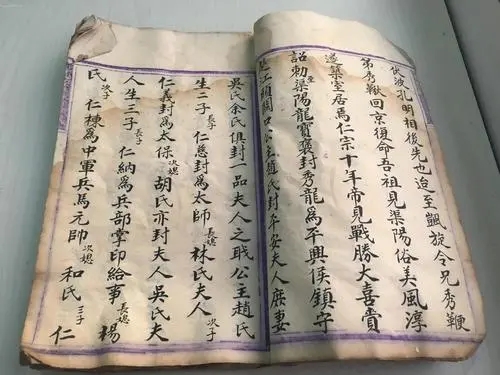 伏波孔明相後先也迨至凱旋令兄秀鞭
弟秀獻回京復命吾祖見渠陽俗美風淳
遂築室居焉仁宗十年帝見戰勝大喜賞
詔勅至渠陽龍寶褒封秀龍為平興侯鎮守
江關口公主趙氏封平安夫人庶妻
吳氏余氏俱封一品夫人之職公主趙氏
生二子 長子 仁慈封為太師 長媳 林氏夫人 次子
仁義封為太保 次媳 胡氏亦封夫人吳氏夫
人生三子 長子 仁納為兵部掌印給事 長媳 楊
氏 次子 仁棟為中軍兵馬元帥 次媳 和氏 三子 仁